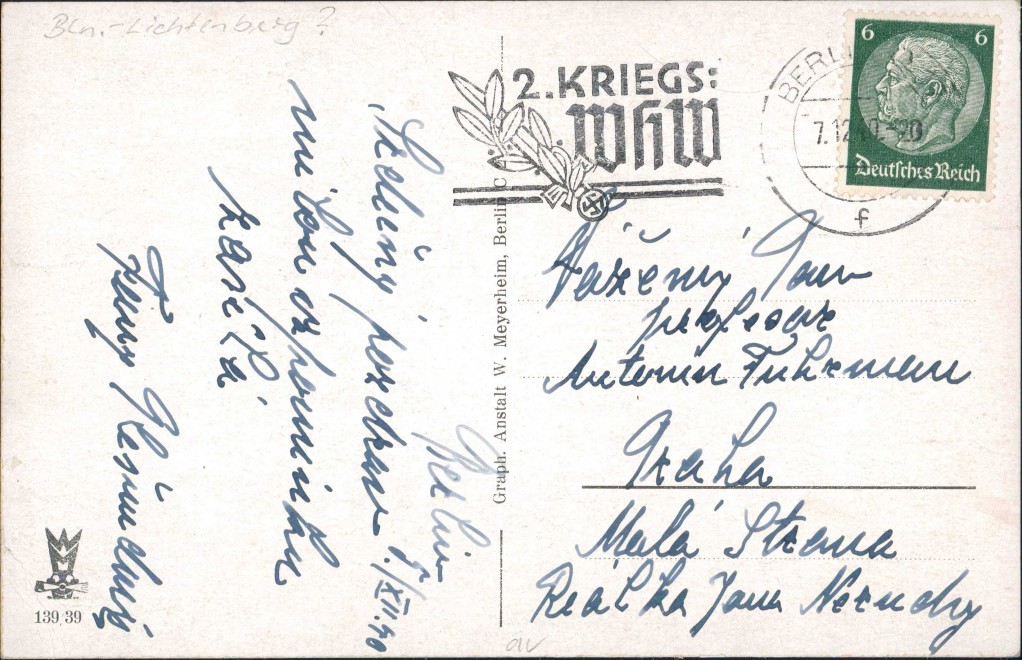 Bln.-Lichtenberg?
2. KRIEGS:
WHW
BERLIN
7.12.40.-20
f
6 6
Deutsches Reich
Berlin 5./XII.40
Srdečný pozdrav
milou vzpomínku
zasílá
Vážený Pan
profesor
Antonín Fuhrman
Praha
Malá Strana
Reálka Jana Nerudy
Graph. Anstalt W. Meyerheim, Berlin C
139/39